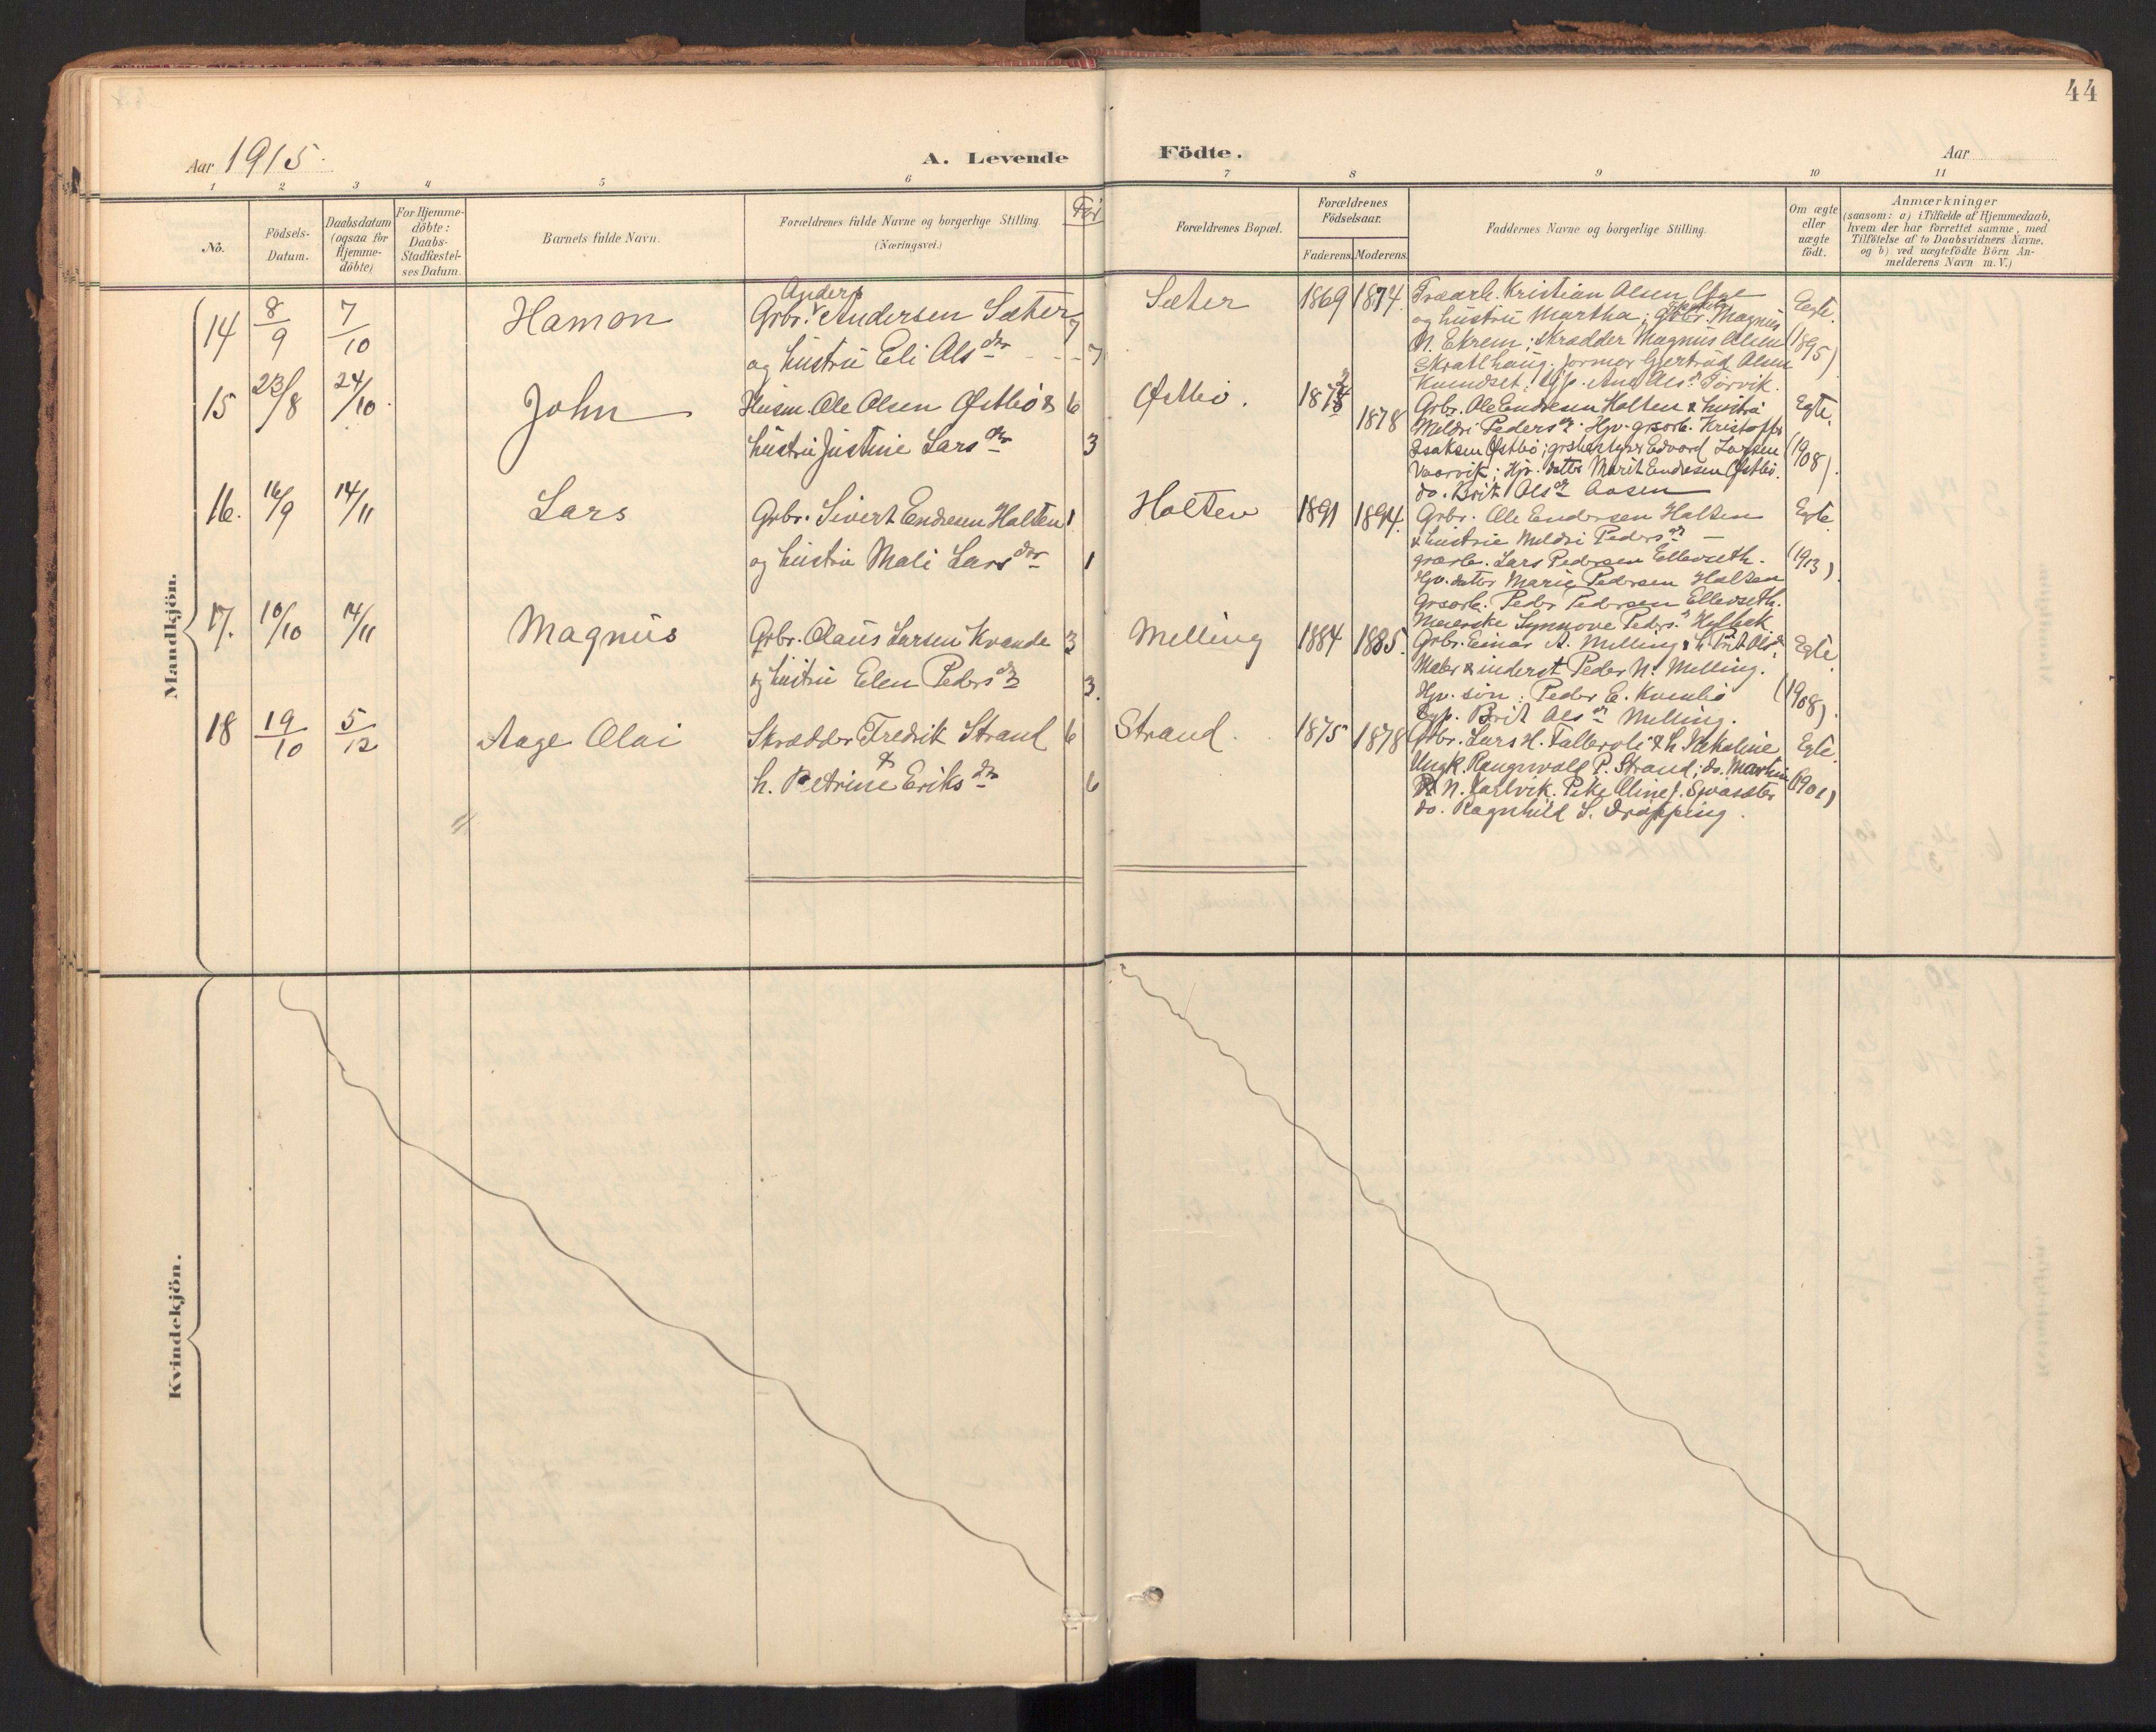 44
Aar 1915.
A. Levende
Födte.
Aar
1 2 3 4 5 6 7 8 9 10 11
No.
Födsels-Datum.
Daabsdatum (ogsaa for Hjemme-döbte)
For Hjemme-döbte: Daabs-Stadfæstel-ses Datum.
Barnets fulde Navn.
Forældrenes fulde Navne og borgerlige Stilling.
(Næringsvei.)
Forældrenes Bopæl.
Forældrenes Födselsaar.
Faderens. Moderens.
Faddernes Navne og borgerlige Stilling.
Om ægte eller uægte födt.
Anmærkninger
(saasom: a) i Tilfælde af Hjemmedaab,
hvem der har forrettet samme, med
Tilföielse af to Daabsvidners Navne.
og b) ved uægtefödte Börn An-
melderens Navn m. V.)
Mandkjön.
14 8/9 7/10 Hamon
Anders
Grbr. Andersen Sæter 7
og hustru Eli Olsdtr 7
Sæter 1869 1874. Egte. (1895)
Træarb. Kristian Olsen
og hustru Martha; Magnus
N. Ekrem; skrædder Magnus Olsen
Gjertrud Olsen
15 23/8 24/10. John
Husm. Ole Olsen Østbö & 6
hustru Justine Larsdtr 3
Østbö. 1878 Egte. (1908).
Grbr. Ole Endresen Holten & hustru
Meldri Pedersdr. Kristoffer
Isaksen Østbö; Edvard Larsen
Vaarvik; Hjv. datter Marit Endresen Østbö.
do. Brit Olsdr Aasen
16. 16/9 14/11 Lars
Grbr. Sivert Endresen Holten 1
og hustru Mali Larsdtr 1
Holten 1891 1894. Egte (1913).
Grbr. Ole Endresen Holten
& hustru Meldri Pedersdr
Lars Pedersen Ellevseth.
Hjv. datter Marie Pedersen Holten
Peder Pedersen Ellevseth.
Meierske Synnove Pedersdr Hylbak
17. 10/10 14/11 Magnus
Grbr. Olaus Larsen Kvande 3
og hustru Elen Pedersdr 3.
Melling 1884 1885. Egte. (1908).
Grbr. Einar A. Melling & h. Brit Olsdr.
Maler & inderst Peder N. Melling.
Hjv. sön: Peder E. Kvenbö
Brit Olsdr Melling.
18 19/10 5/12 Aage Olai
Skrædder Fredrik Strand 6
&
h. Petrine Eriksdtr 6
Strand. 1875 1878 Egte. (1901)
Grbr. Lars H. Talleroli & h. Nikoline
Ungk. Raugnvald P. Strand; do. Martin
N. Pike Oline J.
do. Ragnhild S. Dröpping.
Kvindekjön.